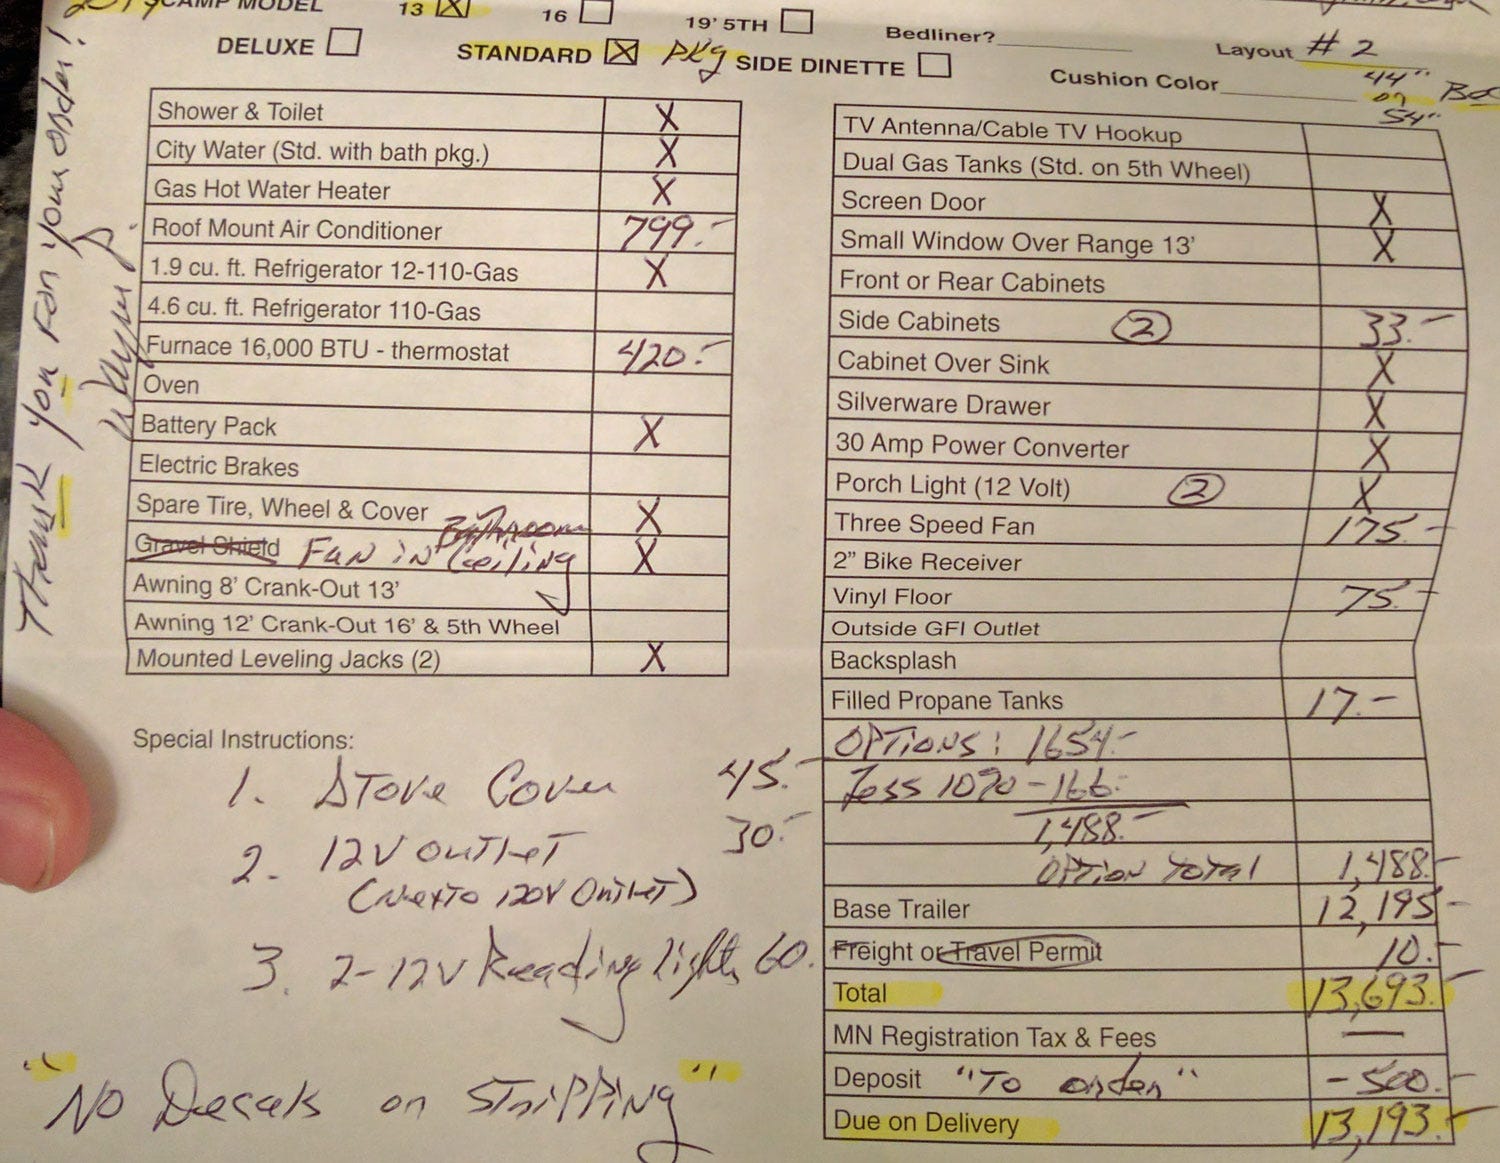 2019 CAMP MODEL 13 X 16 19' 5TH Bedliner? Layout # 2
DELUXE STANDARD X PKg SIDE DINETTE Cushion Color 44" Bed
or
54"
Shower & Toilet X
City Water (Std. with bath pkg.) X
Gas Hot Water Heater X
Roof Mount Air Conditioner 799.-
1.9 cu. ft. Refrigerator 12-110-Gas X
4.6 cu. ft. Refrigerator 110-Gas
Furnace 16,000 BTU - thermostat 420.-
Oven
Battery Pack X
Electric Brakes
Spare Tire, Wheel & Cover X
Bathroom
Gravel Shield Fan in Ceiling X
Awning 8' Crank-Out 13'
Awning 12' Crank-Out 16' & 5th Wheel
Mounted Leveling Jacks (2) X
TV Antenna/Cable TV Hookup
Dual Gas Tanks (Std. on 5th Wheel)
Screen Door X
Small Window Over Range 13' X
Front or Rear Cabinets
Side Cabinets 2 33.-
Cabinet Over Sink X
Silverware Drawer X
30 Amp Power Converter X
Porch Light (12 Volt) 2 X
Three Speed Fan 175.-
2" Bike Receiver
Vinyl Floor 75.-
Outside GFI Outlet
Backsplash
Filled Propane Tanks 17.-
OPTIONS: 1654.-
Less 10% -166.-
1,488.-
OPTION TOTAL 1,488.-
Base Trailer 12,195.-
Freight or Travel Permit 10.-
Total 13,693.-
MN Registration Tax & Fees —
Deposit "To order" -500.-
Due on Delivery 13,193.-
Special Instructions:
1. Stove Cover 45.-
2. 12V outlet 30.-
(Next to 120V Outlet)
3. 2-12V Reading lights 60.
"No Decals or Stripping"
Thank you for your order!
Wayne P.